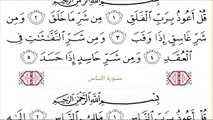 بِسْمِ اللَّهِ الرَّحْمَٰنِ الرَّحِيمِ
قُلْ أَعُوذُ بِرَبِّ الْفَلَقِ ١ مِن شَرِّ مَا خَلَقَ ٢ وَمِن
شَرِّ غَاسِقٍ إِذَا وَقَبَ ٣ وَمِن شَرِّ النَّفَّاثَاتِ فِي
الْعُقَدِ ٤ وَمِن شَرِّ حَاسِدٍ إِذَا حَسَدَ ٥
سورة الناس
بِسْمِ اللَّهِ الرَّحْمَٰنِ الرَّحِيمِ